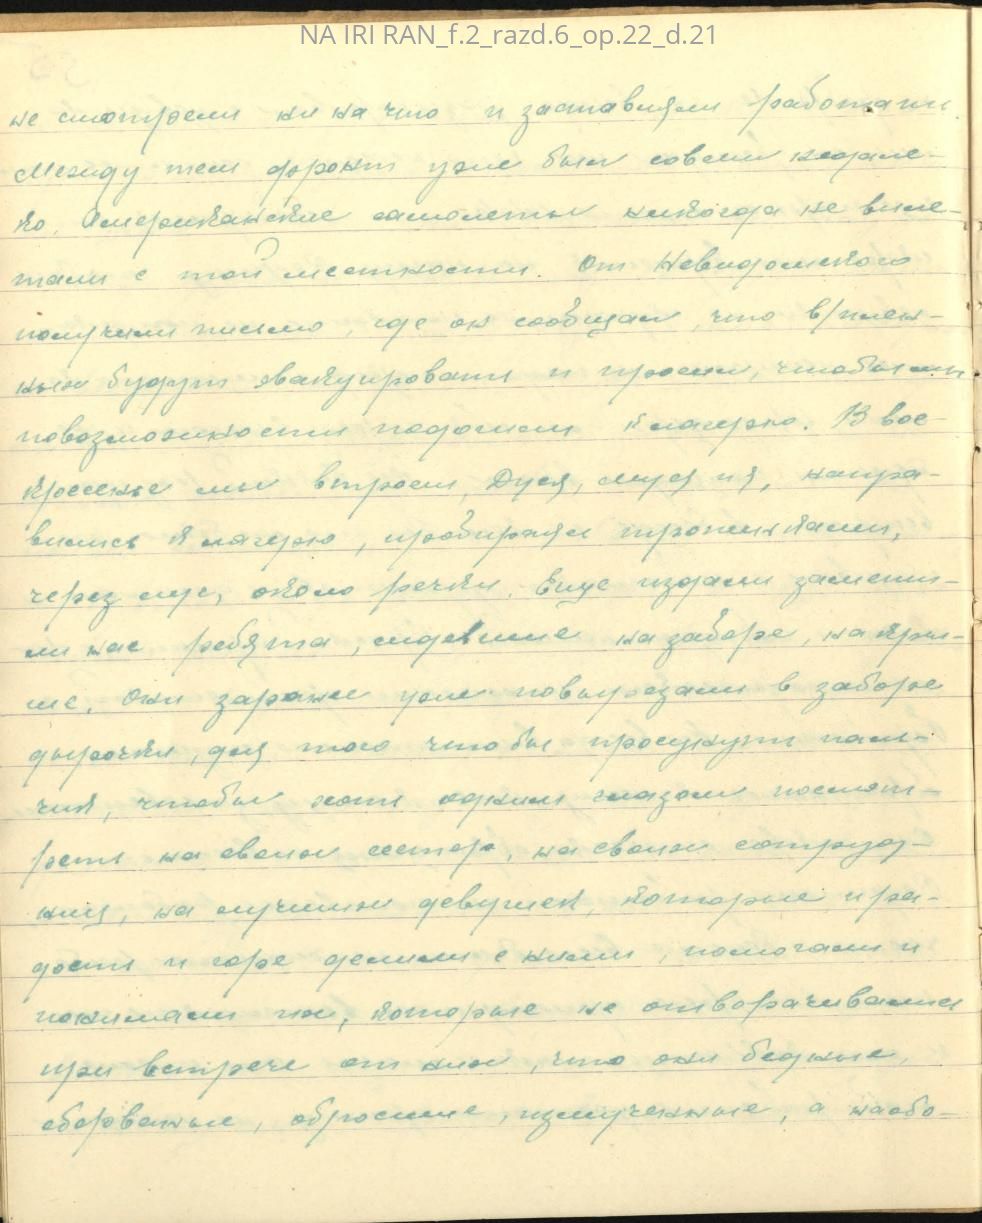 NA IRI RAN_f.2_razd.6_op.22_d.21
не смотрели ни на что и заставляли работать
Между тем фронт уже был совсем недале-
ко. Американские самолеты никогда не выле-
тали с той местности. От Невидомского
получили письмо, где он сообщал, что в/плен-
ных будут эвакуировать и просил, чтобы мы
повозможности подошли к лагерю. В вос-
кресенье мы втроем, Дуся, Муся и я, напра-
вились к лагерю, пробираясь тропинками,
через лес, около речки. Еще издали замети-
ли нас ребята, сидевшие на заборе, на кры-
ше. Они заранее уже повырезали в заборе
дырочки, для того чтобы просунуть паль-
чик, чтобы хоть одним глазом посмот-
реть на своих сестер, на своих сотруд-
ниц, на лучших девушек, которые и ра-
дость и горе делили с ними, помогали и
понимали их, которые не отворачивались
при встрече от них, что они бедные,
оборваные, обросшие, измученные, а наобо-